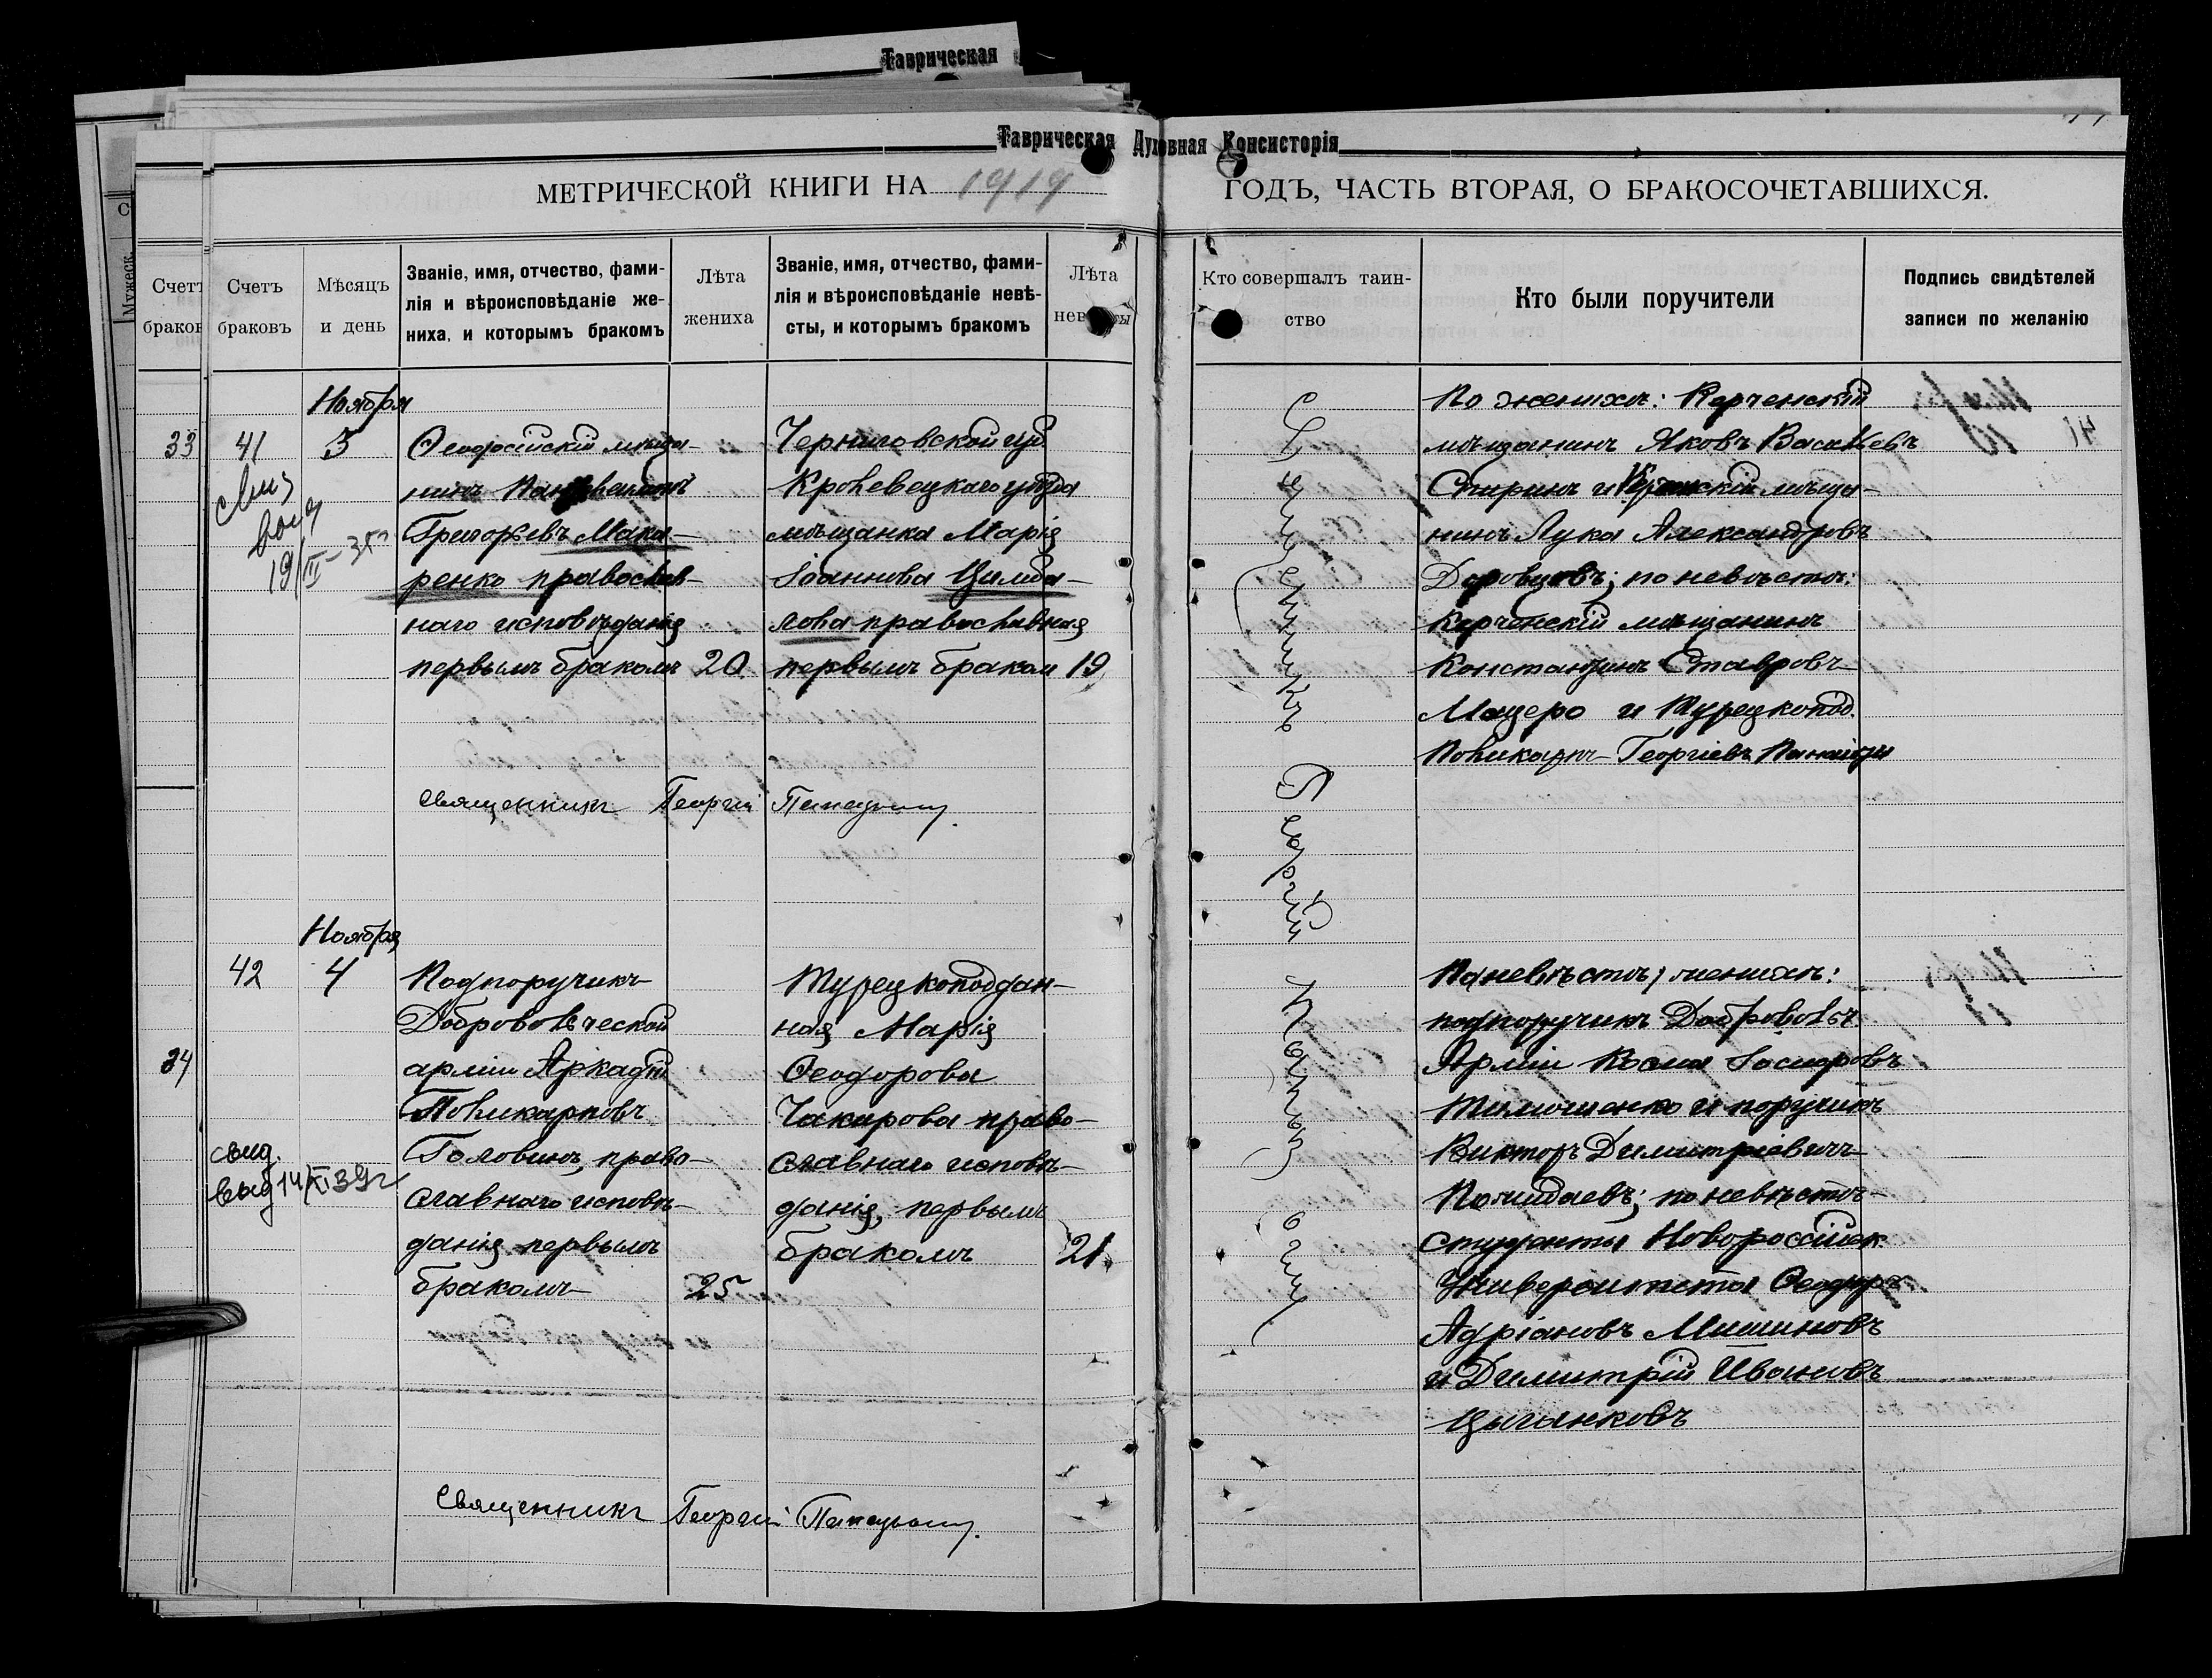 Таврическая
Таврическая Духовная Консисторія
МЕТРИЧЕСКОЙ КНИГИ НА 1919 ГОДЪ, ЧАСТЬ ВТОРАЯ, О БРАКОСОЧЕТАВШИХСЯ.
Мужеск.
Счетъ
браков
Счетъ
браковъ
Мѣсяцъ
и день
Званіе, имя, отчество, фами-
лія и вѣроисповѣданіе же-
ниха, и которымъ бракомъ
Лѣта
жениха
Званіе, имя, отчество, фами-
лія и вѣроисповѣданіе невѣ-
сты, и которымъ бракомъ
Лѣта
невѣсты
Кто совершалъ таин-
ство
Кто были поручители
Подпись свидѣтелей
записи по желанію
33
41
Ноября
3
Ѳеодосійскій мѣща-
нинъ
Григорьевъ Мака-
ренко православ-
наго исповѣданія
первымъ бракомъ
20
Черниговской губ.
Кролевецкаго уѣзда
мѣщанка Марія
Іоаннова Цимба-
лова православная
первымъ браком
19
Священникъ Георгій
По женихѣ: Керченскій
мѣщанинъ Яковъ Васильевъ
Спиринъ и Керченскій мѣща-
нинъ Лука Александровъ
по невѣстѣ:
Керченскій мѣщанинъ
Константинъ Ставровъ
Мацеро и Турецкопод.
Поликарпъ Георгіевъ
Священникъ Георгій
34
42
свид.
выд 14/XI 39 г
Ноября
4
Подпоручикъ
Добровольческой
арміи Аркадій
Поликарповъ
Головинъ, право-
славнаго исповѣ-
данія первымъ
бракомъ
25
Турецкоподдан-
ная Марія
Ѳеодорова
Чакирова право-
славнаго исповѣ-
данія, первымъ
бракомъ
21
женихѣ:
подпоручикъ Добровольч.
Арміи Косма Іосифовъ
Тимошенко и поручикъ
Викторъ Димитріевичъ
по невѣстѣ
студенты Новороссійск.
Университета Ѳеодоръ
Адріановъ Мишиновъ
и Димитрій Ивановъ
Цыганковъ
Священникъ Георгій